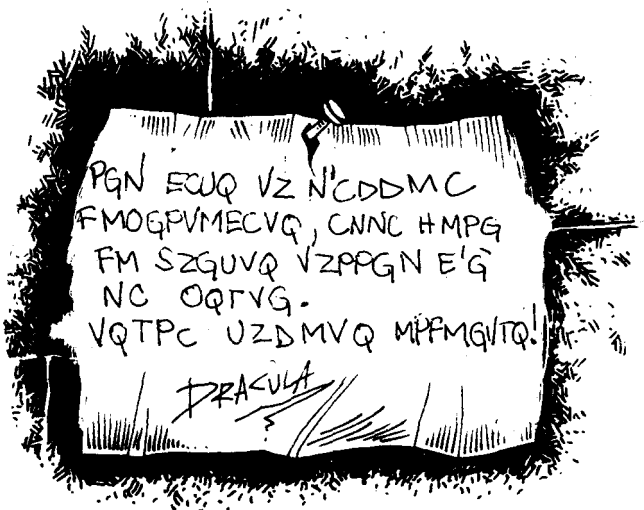 PGN ECUQ VZ N'CDDMC
FMOGPVMECVQ, CNNC HMPG
FM SZGUVQ VZPPGN E'G
NC OQTVG.
VQTPC UZDMVQ MPFMGVTQ!
DRACULA